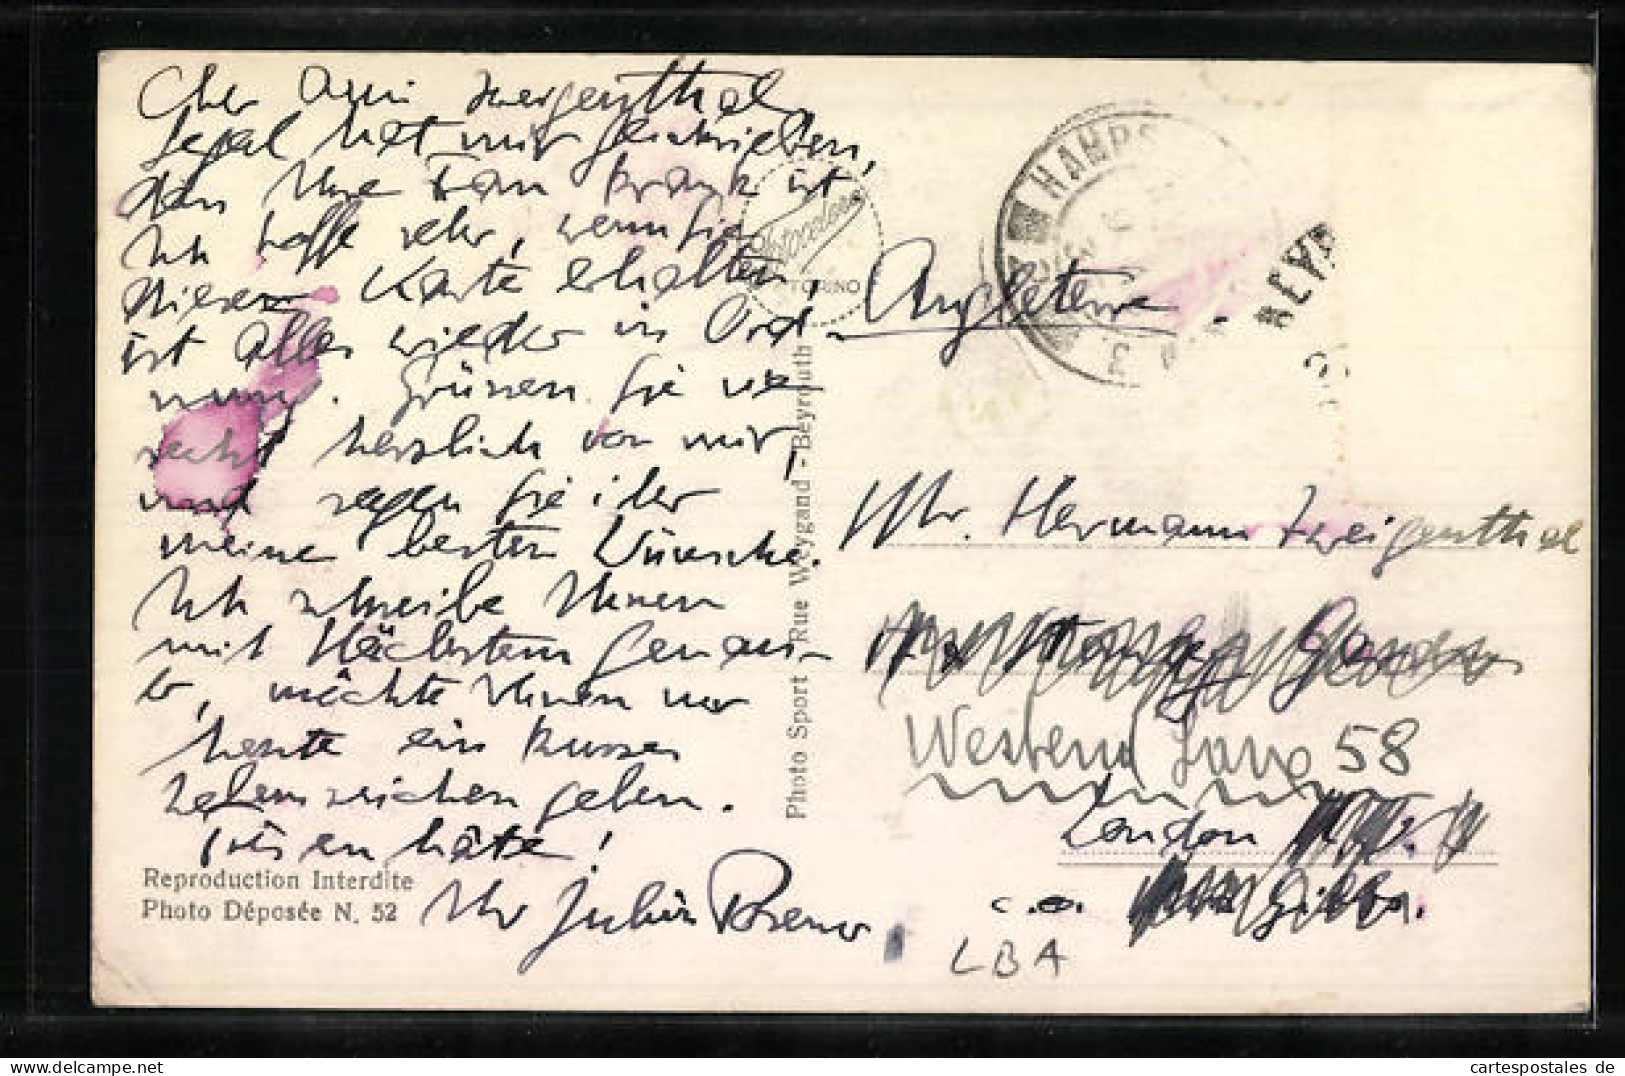 Cher Ami Zweigenthal,
Segal hat mir geschrieben,
dass Ihre Frau krank ist
Ich hoffe sehr, wenn Sie
diesen Karte erhalten,
ist alles wieder in Ord-
nung. Grüssen Sie sie
recht herzlich von mir,
und sagen Sie ihr
meine besten Wünsche.
Ich schreibe Ihnen
mit Nächstem Genaue-
res, möchte Ihnen nur
heute ein kurzes
Lebenszeichen geben.
Ihr Julius Posener
Reproduction Interdite
Photo Déposée N. 52
Photo Sport Rue Weygand - Beyrouth
TORINO
HAMPS
BEYR
Angleterre.
Mr. Hermann Zweigenthal
Westend Lane 58
London
c.o.
LBA
cartespostales de